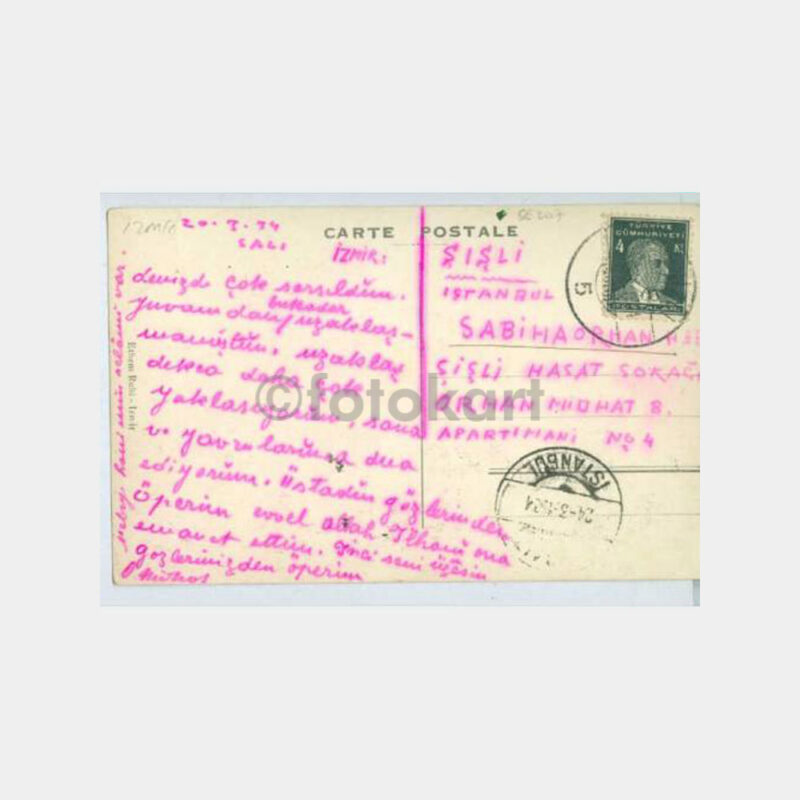 İZMİR
20-3-34
SALI
CARTE POSTALE
İZMİR:
Denizde çok sarsıldım.
Yuvamdan bukadar uzaklaş-
mamıştım, uzaklaş
dıkça daha çok
yaklaşıyorum, sana
ve yavrularına dua
ediyorum. Üstadın gözlerinden
Öperim evvel Allah İlhami ona
emanet ettim. seni üçüsün
gözlerinizden öperim
selâmı var.
Ethem Ruhi - İzmir
ŞİŞLİ
ISTANBUL
SABIHA ORHAN
ŞİŞLİ HASAT SOKAĞ
ORHAN MIDHAT B.
APARTIMANI No 4
TÜRKİYE
CÜMHURİYETİ
4
POSTALARI
5
ISTANBUL
24-3-1934
©fotokart